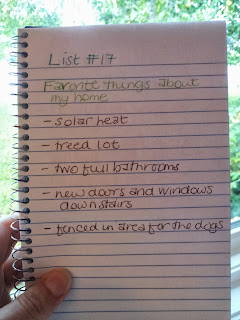 List #17
Favorite things about
my home
- solar heat
- treed lot
- two full bathrooms
- new doors and windows
downstairs
- fenced in area for the dogs